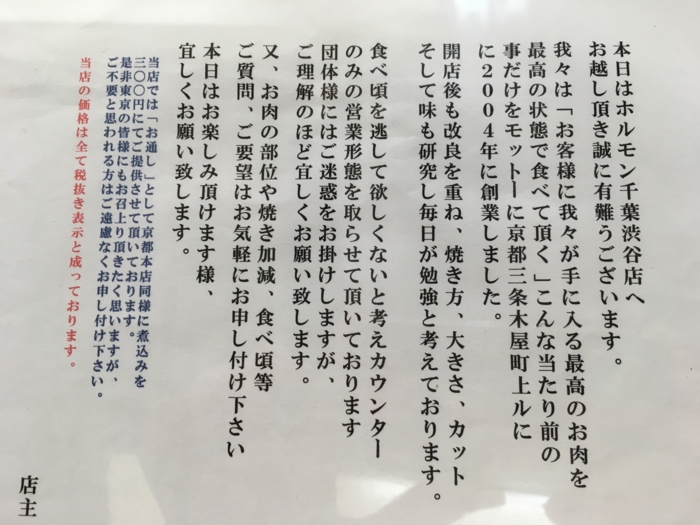 本日はホルモン千葉渋谷店へ
お越し頂き誠に有難うございます。
我々は「お客様に我々が手に入る最高のお肉を
最高の状態で食べて頂く」こんな当たり前の
事だけをモットーに京都三条木屋町上ルに
に2004年に創業しました。
開店後も改良を重ね、焼き方、大きさ、カット
そして味も研究し毎日が勉強と考えております。
食べ頃を逃して欲しくないと考えカウンター
のみの営業形態を取らせて頂いております
団体様にはご迷惑をお掛けしますが、
ご理解のほど宜しくお願い致します。
又、お肉の部位や焼き加減、食べ頃等
ご質問、ご要望はお気軽にお申し付け下さい
本日はお楽しみ頂けます様、
宜しくお願い致します。
当店では「お通し」として京都本店同様に煮込みを
三〇〇円にてご提供させて頂いております。
是非東京の皆様にもお召上り頂きたく思いますが、
ご不要と思われる方はご遠慮なくお申し付け下さい。
当店の価格は全て税抜き表示と成っております。
店主